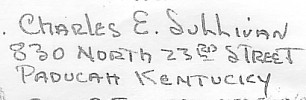 . CHARLES E. SULLIVAN
830 NORTH 23RD STREET
PADUCAH KENTUCKY